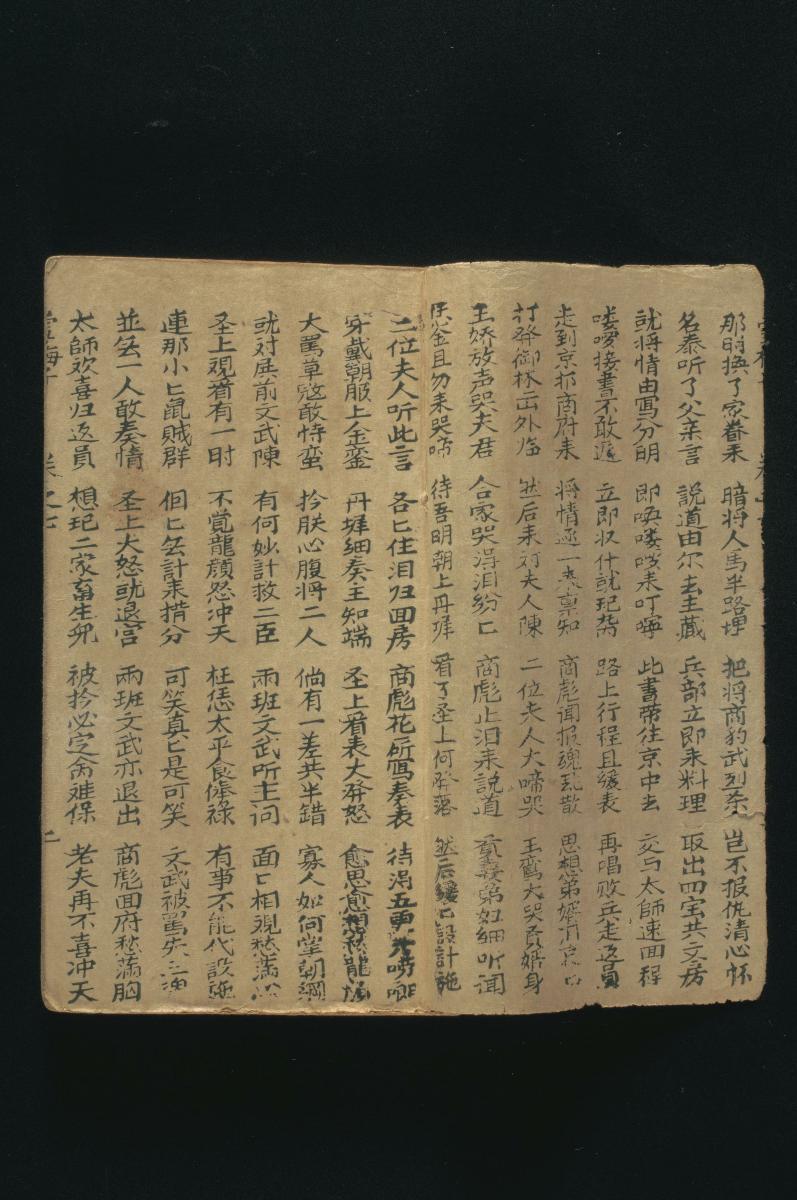 那時换了家眷来 暗将人馬半路埋 把将商豹武烈杀 岂不报仇清心怀
名泰听了父亲言 説道由尔去主藏 兵部立即来料理 取出四宝共文房
就将情由写分明 即唤喽啰来叮嚀 此書带往京中去 交与太師速回程
喽啰接書不敢遲 立即収什就起 路上行程且緩表 再唱败兵走返員
走到京城商府来 将情逐一来禀知 商彪闻报魂乱散 思想弟婿
打發御林出外临 然后来对夫人陳 二位夫人大啼哭 玉鸞大哭吾婿身
玉嬌放声哭夫君 合家哭得泪紛匕 商彪止泪来説道 贰義弟妇細听闻
且勿来哭啼 待吾明朝上丹墀 看了圣上何發落 然后緩匕設計施
二位夫人听此言 各匕住泪归回房 商彪花所写奏表 待得五更
穿戴朝服上金銮 丹墀細奏主知端 圣上看表大發怒 愈思愈想惹龍
大罵草寇敢恃蛮 扲朕心腹将二人 倘有一差共半錯 寡人如何掌朝綱
就对展前文武陳 有何妙計救二臣 兩班文武听主问 面匕相視愁滿
圣上視着有一时 不觉龍顔怒冲天 枉恁太平食俸禄 有事不能代設施
連那小匕鼠賊群 個匕無計来揹分 可笑真匕是可笑 文武被罵失三魂
並無一人敢奏情 圣上大怒就退宫 兩班文武亦退出 商彪回府愁滿胸
太師欢喜归返員 想起二家畜生兒 被扲必定命难保 老夫再不喜冲天
卷之七